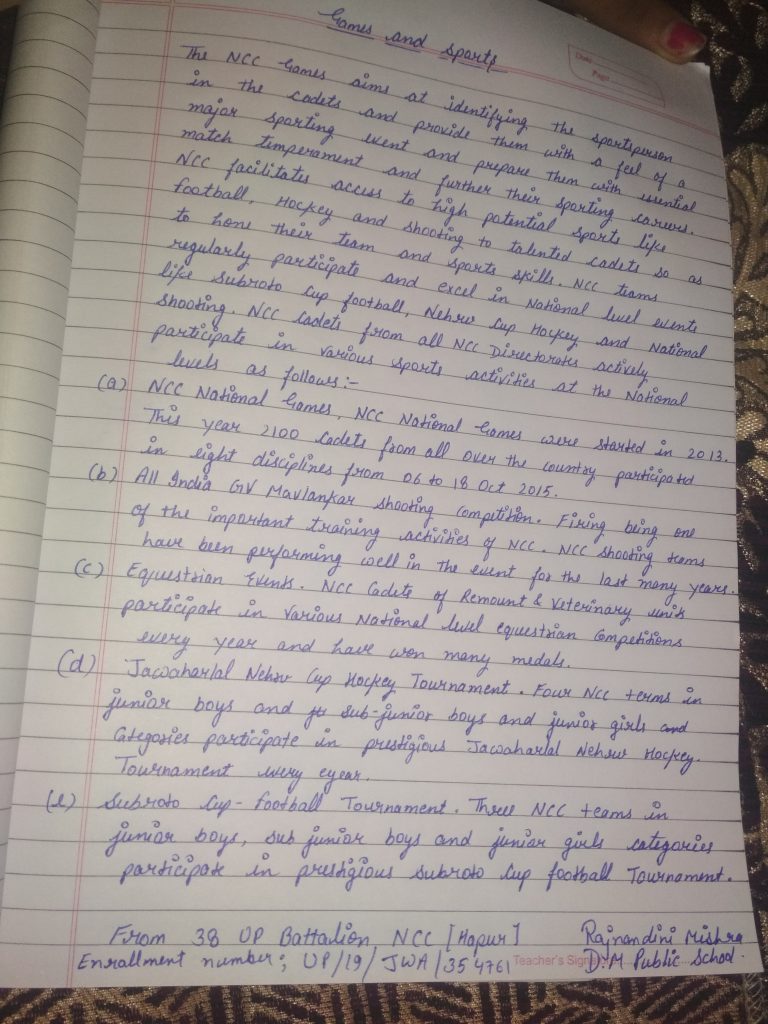 Games and Sports
Date
Page
The NCC Games aims at identifying the sportsperson
in the cadets and provide them with a feel of a
major sporting event and prepare them with essential
match timperament and further their sporting careers.
NCC facilitates access to high potential sports like
football, Hockey and shooting to talented cadets so as
to hone their team and sports skills. NCC teams
regularly participate and excel in National level events
like Subroto Cup football, Nehru Cup Hockey and National
shooting. NCC Cadets from all NCC Directorates actively
participate in various sports activities at the National
levels as follows:-
(a) NCC National Games. NCC National Games were started in 2013.
This year 2100 Cadets from all over the country participated
in eight disciplines from 06 to 18 Oct 2015.
(b) All India GV Mavlankar Shooting Competition. Firing being one
of the important training activities of NCC. NCC Shooting teams
have been performing well in the event for the last many years.
(c) Equestrian Events. NCC Cadets of Remount & Veterinary units
participate in various National level equestrian Competitions
every year and have won many medals.
(d) Jawaharlal Nehru Cup Hockey Tournament. Four NCC terms in
junior boys and ju sub-junior boys and junior girls and
Categories participate in prestigious Jawaharlal Nehru Hockey.
Tournament every eyear.
(e) Subroto Cup-football Tournament. Three NCC teams in
junior boys, sub junior boys and junior girls categories
participate in prestigious Subroto Cup football Tournament.
From 38 UP Battalion, NCC [Hapur] Rajnandini Mishra
Enrallment number; UP/19/JWA/354761 Teacher's Sign D.M Public School.